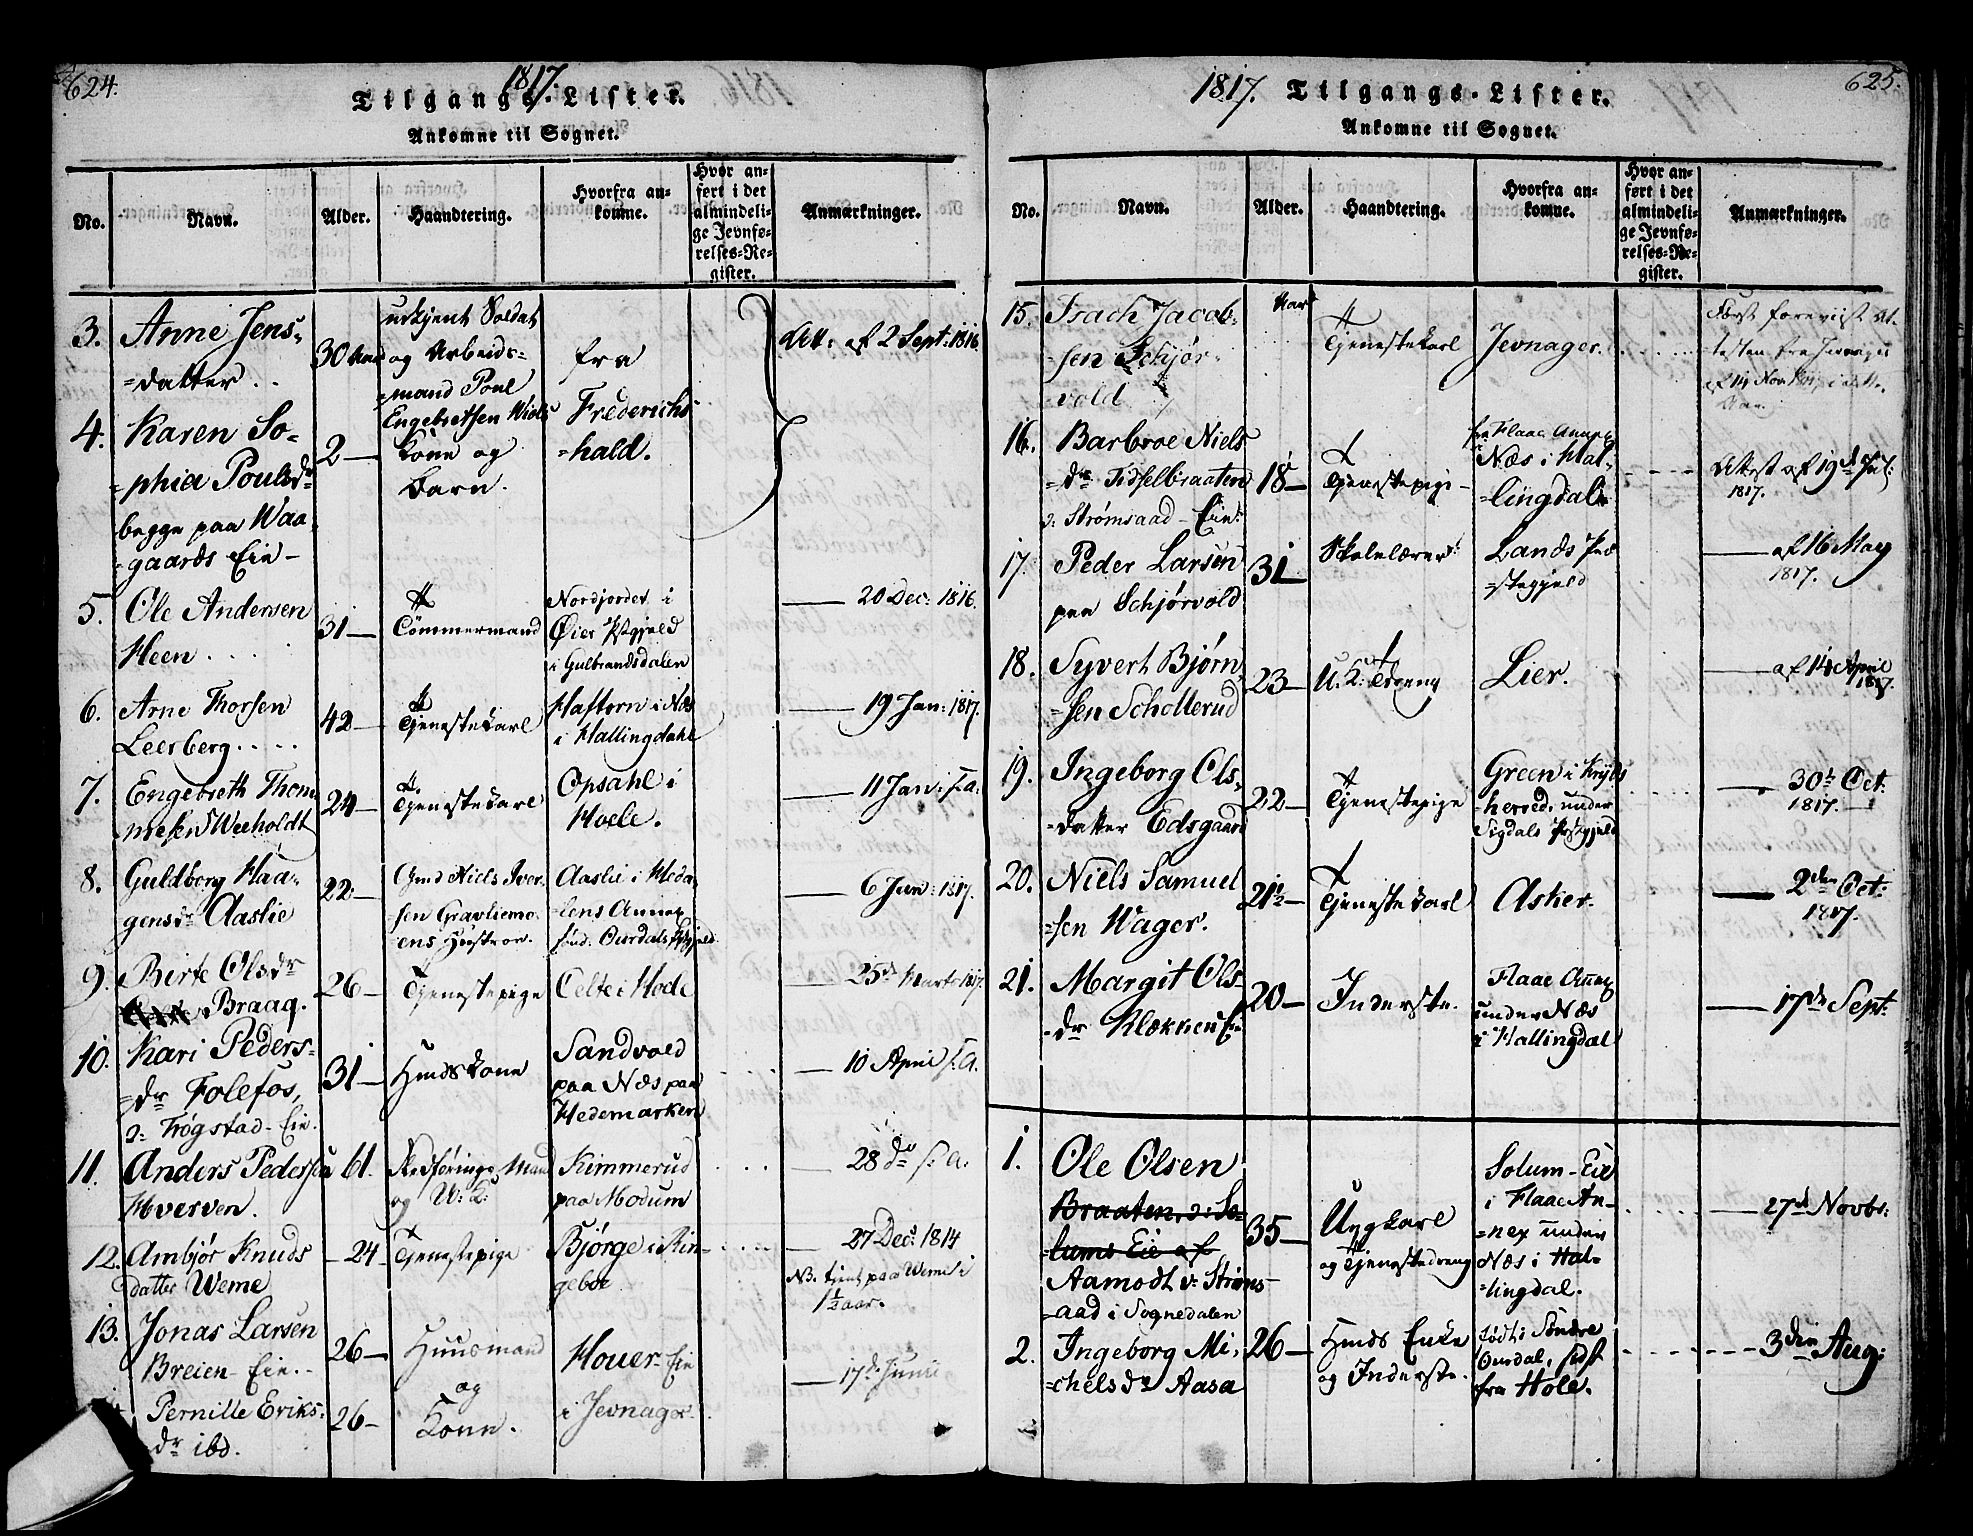 624.
1817.
Tilgangs-Lister.
Ankomne til Sognet.
No.
Navn.
Alder.
Haandtering.
Hvorfra an-
komne.
Hvor an-
ført i det
almindeli-
ge Jevnfø-
relses-Re-
gister.
Anmærkninger.
3.
Anne Jens-
-datter . .
30 Aar
udtjent Soldat
og Arbeids-
-mand Poul
Engebretsen Wiels
Kone og
Barn.
fra
Frederichs-
-hald.
Att: af 2 Sept: 1816.
4.
Karen So-
-phia Poulsdr
begge paa Waa-
-gaards Eie-
2-
5.
Ole Andersen
Heen . . . .
31-
Tömmermand
Nordjordet i
Øier Pstgjeld
i Gulbrandsdalen
20 Dec: 1816.
6.
Arne Thorsen
Leerberg. . . .
42-
Tjenestekarl
Haftorn i Næs
i Hallingdahl
19 Jan: 1817.
7.
Engebreth Thom-
mesen Weeholdt
24-
Tjenestekarl
Opsahl i
Hoele.
11 Jan: s: a.
8.
Guldborg Haa-
gensdr Aaslie
22-
Gmd Niels Iver-
-sen Gravliemo-
-ens Hustroe.
Aaslie i Heda-
-lens Annex
sönd: Ourdals Pstgjeld
6 Jan: 1817.
9.
Birte Olsdr
Braaq.
26-
Tjenestepige
Celte i Hole
25de Marts 1817.
10.
Kari Peders-
-dr Folefos,
ɔ: Trøgstad-Eie.
31-
Huuskone
Sandvold
paa Næs paa
Hedemarken
10 April s. A.
11.
Anders Pedersen
Hverven.
61.
Skydførings-Mand
og U: K:
Kimmerud
paa Modum
28de s: a.
12.
Ambjør Knuds
datter Weme
-24-
Tjenestepige
Bjørge i Rin-
geboe
27 Dec: 1814
NB. tjent paa Weme i
1½ aar.
13.
Jonas Larsen
Breien-Eie..
26-
Huusmand
og
Kone.
Houer-Eie
i Jevnager.
17de Junii
Pernille Eriks-
dr ibd.
26-
625.
1817.
Tilgangs-Lister.
Ankomne til Sognet.
No.
Navn.
Alder.
Haandtering.
Hvorfra an-
komne.
Hvor an-
ført i det
almindeli-
ge Jevnfø-
relses-Re-
gister.
Anmærkninger.
15.
Isach Jacob-
-sen Schjør-
vold
Aar
Tjenestekarl
Jevnager.
Først foreviist At-
testen fra Jevnager
af 14 Nov.
Aar.
16.
Barbroe Niels
-dr Tidselbraaten
ɔ: Strømsaad-Eie.
18-
Tjenestepige-
fra Flaae Annex
Næs i Hal-
-lingdal
Attest af 19de Jul:
1817.
17.
Peder Larsen
paa Schjørvold
31-
Skolelærer
Lands Præ
-stegjeld
af 16 May
1817.
18.
Syvert Bjørn-
-sen Schollerud
23-
U. K: Dreng
Lier.
af 14 April
1817.
19.
Ingeborg Ols-
-datter Edsgaard
22-
Tjenestepige
Green i Kryds
-herred, under
Sigdals Pstgjeld
30te Oct.
1817.
20.
Niels Samuel
-sen Wager.
21½-
Tjenestekarl
Asker.
2den Oct:
1817.
21.
Margit Ols-
-dr Klækken Eie
20-
Inderste.
Flaae Annex
under Næs
i Hallingdal
17de Sept:
1.
Ole Olsen
Braaten, ɔ: So-
-lums Eie af
Aamodt v: Strøms-
-aad i Sognedalen
35-
Ungkarl
og Tjenestedreng
Solum-Eie
i Flaae An-
-nex under
Næs i Hal-
-lingdal.
27de Novbr:
2.
Ingeborg Mi-
-chelsdr Aasa
26-
Huus Enke
og Inderste.
født i Søndre
Ourdal, sidst
fra Hole.
3die Aug: